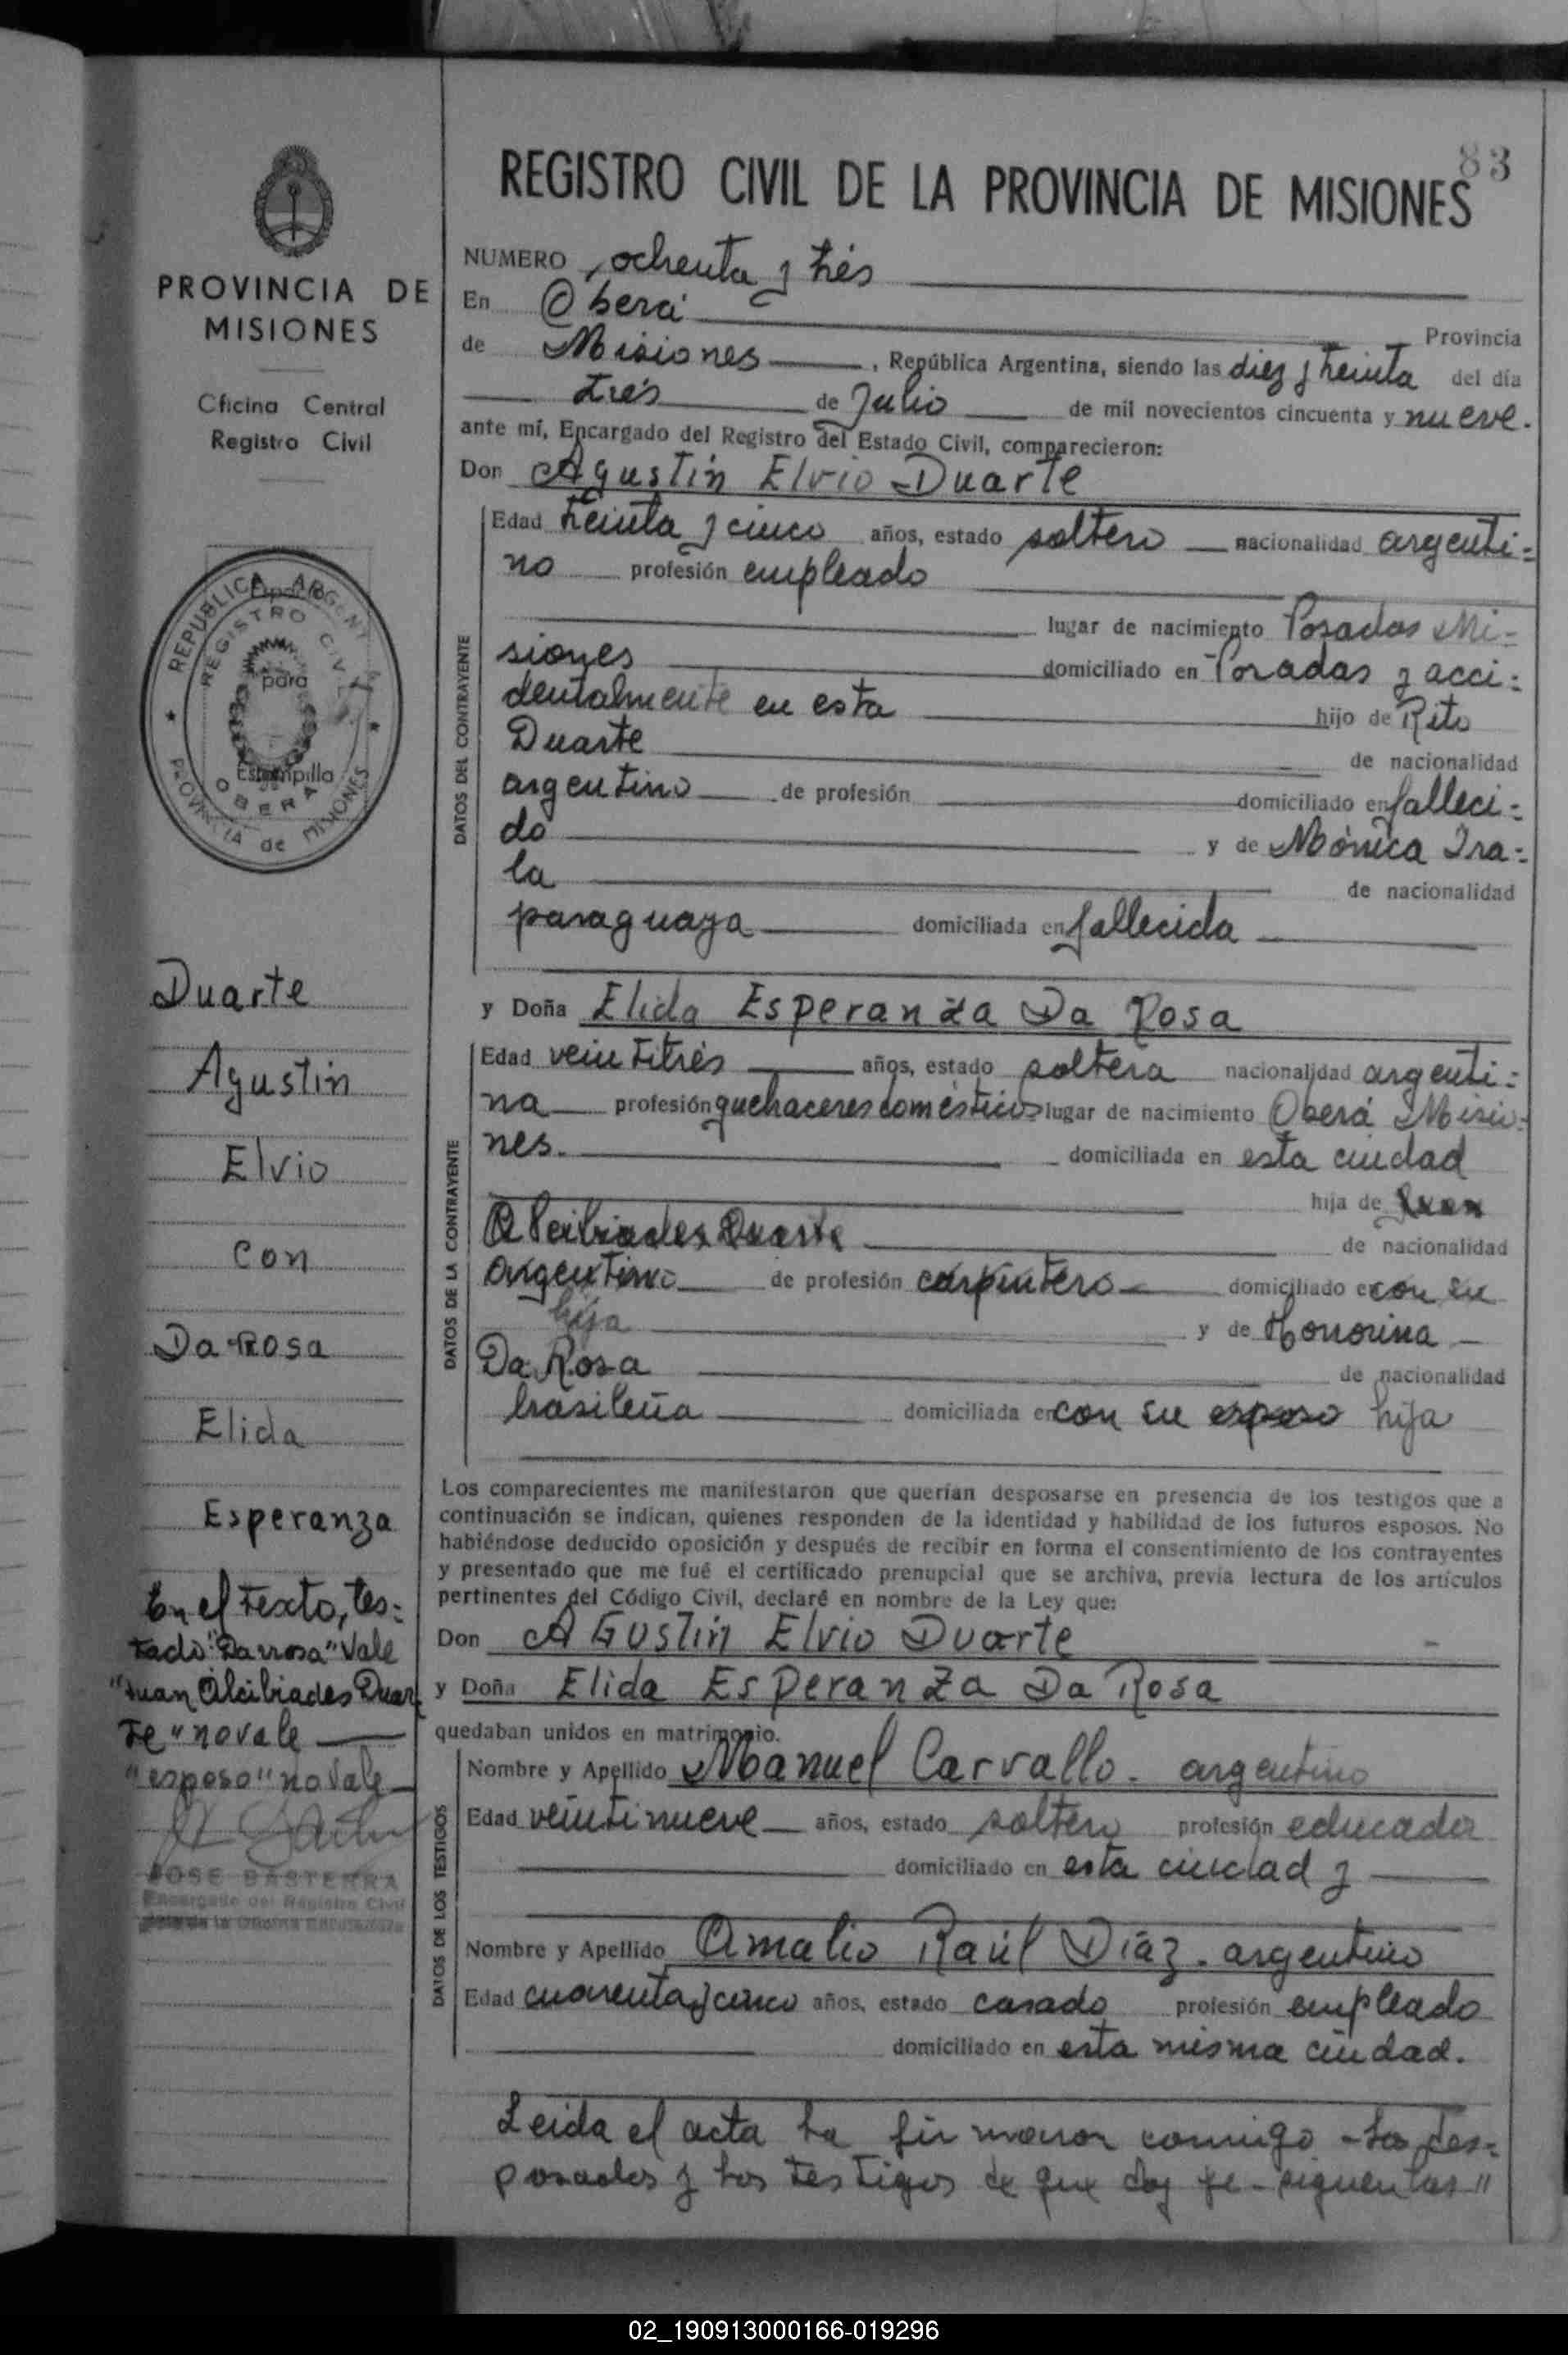 83
REGISTRO CIVIL DE LA PROVINCIA DE MISIONES
PROVINCIA DE
MISIONES
Oficina Central
Registro Civil
REPUBLICA ARGENTINA
REGISTRO CIVIL
Espacio
para
Estampilla
OBERA
PROVINCIA de MISIONES
Duarte
Agustin
Elvio
con
Da Rosa
Elida
Esperanza
En el texto, tes=
tado "Darrosa" Vale
"Juan Alcibiades Duar
te" no vale
"esposo" no vale
JOSE BASTERRA
Encargado del Registro Civil
NUMERO ochenta y trés
En Oberá Provincia
de Misiones, República Argentina, siendo las diez y treinta del día
trés de Julio de mil novecientos cincuenta y nueve.
ante mí, Encargado del Registro del Estado Civil, comparecieron:
Don Agustín Elvio Duarte
DATOS DEL CONTRAYENTE
Edad treinta y cinco años, estado soltero nacionalidad argenti=
no profesión empleado
lugar de nacimiento Posadas Mi=
siones domiciliado en Posadas y acci=
dentalmente en esta hijo de Rito
Duarte de nacionalidad
argentino de profesión domiciliado en falleci=
do y de Mónica Ira=
la de nacionalidad
paraguaya domiciliada en fallecida
y Doña Elida Esperanza Da Rosa
DATOS DE LA CONTRAYENTE
Edad veintitrés años, estado soltera nacionalidad argenti=
na profesión quehaceres domésticos lugar de nacimiento Oberá Misio=
nes. domiciliada en esta ciudad
hija de Juan
Alcibiades Duarte de nacionalidad
argentino de profesión carpintero domiciliado en con su
hija y de Honorina
Da Rosa de nacionalidad
brasileña domiciliada en con su esposo hija
Los comparecientes me manifestaron que querían desposarse en presencia de los testigos que a
continuación se indican, quienes responden de la identidad y habilidad de los futuros esposos. No
habiéndose deducido oposición y después de recibir en forma el consentimiento de los contrayentes
y presentado que me fué el certificado prenupcial que se archiva, previa lectura de los artículos
pertinentes del Código Civil, declaré en nombre de la Ley que:
Don Agustín Elvio Duarte
y Doña Elida Esperanza Da Rosa
quedaban unidos en matrimonio.
DATOS DE LOS TESTIGOS
Nombre y Apellido Manuel Carvallo. argentino
Edad veintinueve años, estado soltero profesión educador
domiciliado en esta ciudad y
Nombre y Apellido Amalio Raúl Díaz. argentino
Edad cuarenta y cinco años, estado casado profesión empleado
domiciliado en esta misma ciudad.
Leida el acta la firmaron conmigo los des=
posados y los testigos de que doy fe-
02_190913000166-019296